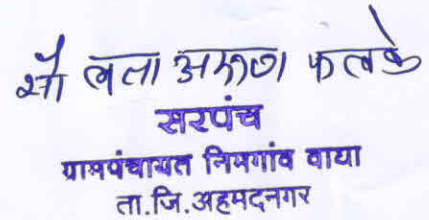 सौ लता अरूण फलके
सरपंच
ग्रामपंचायत निमगांव वाघा
ता.जि.अहमदनगर